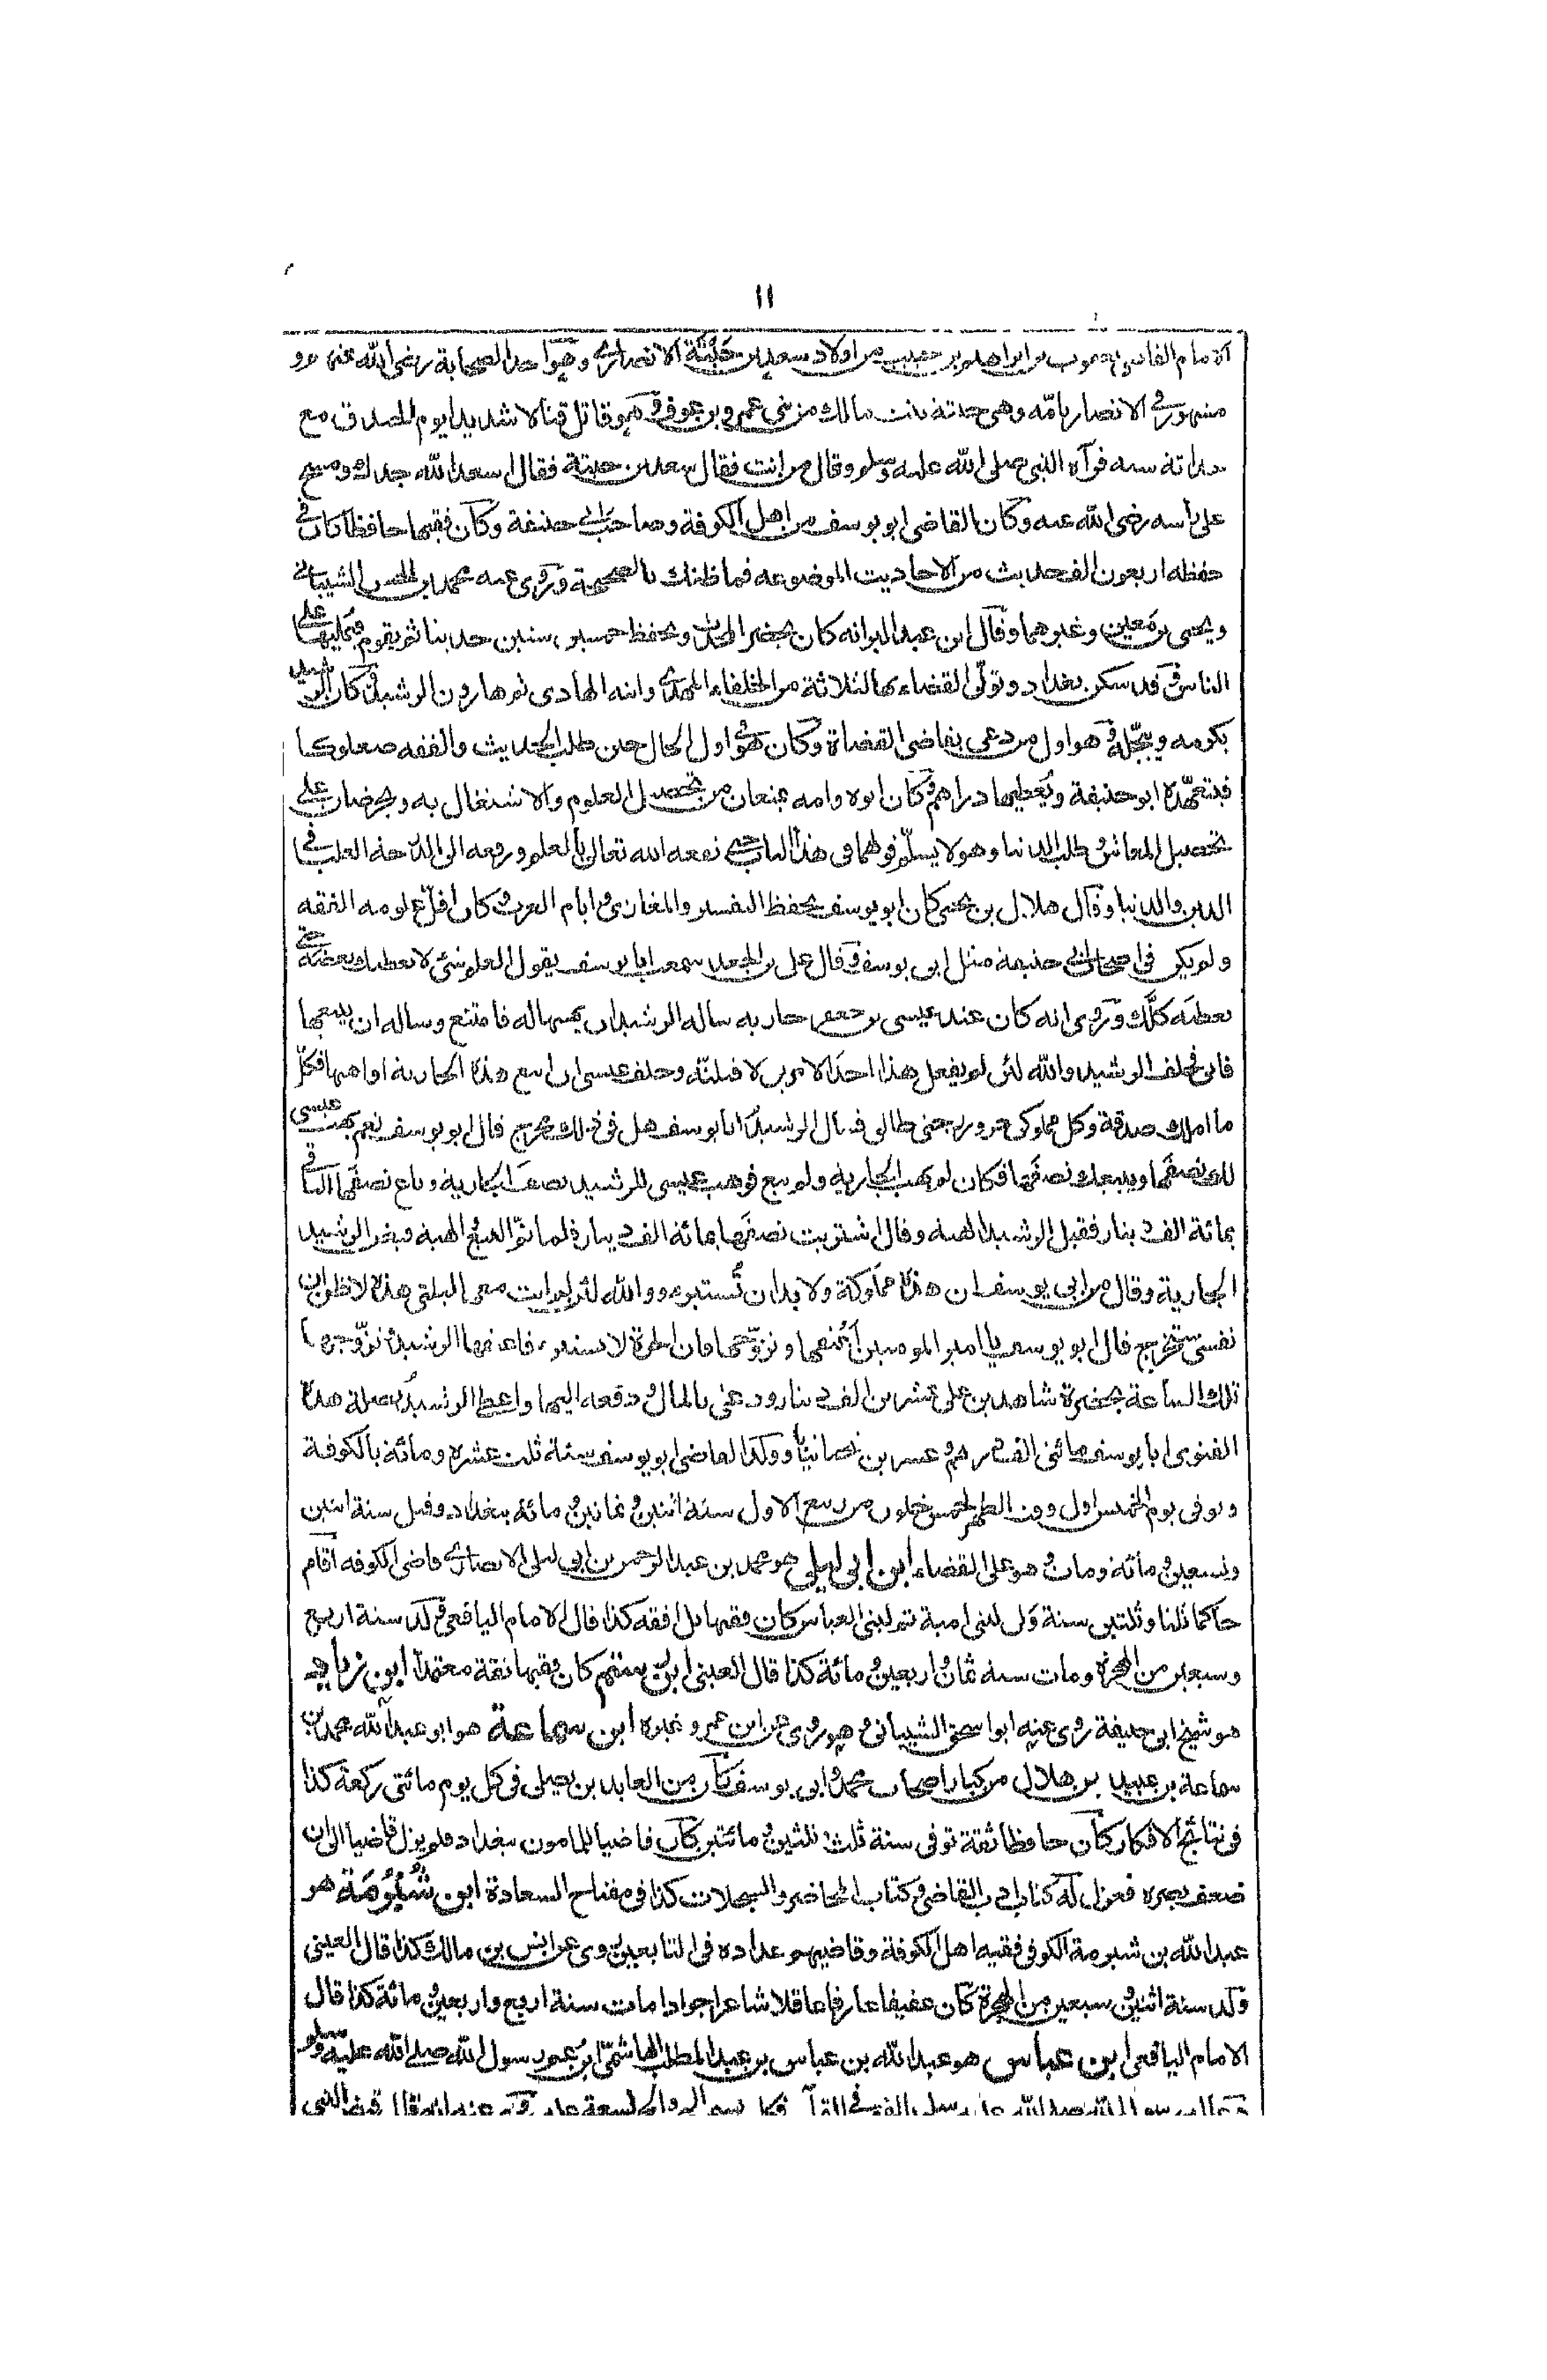 ١١
الامام القاضي يعقوب بن ابراهيم بن حبيب من اولاد سعد بن حبتة الانصاري وهو احد الصحابة رضي الله عنهم وهو
مشهور في الانصار بامه وهي حبتة بنت مالك من بني عمرو بن عوف وهو قاتل قتالا شديدا يوم الخندق مع
حداثة سنه فرآه النبي صلى الله عليه وسلم وقال من انت فقال سعد بن حبتة فقال اسعد الله جدك ومسح
على راسه رضي الله عنه وكان القاضي ابو يوسف من اهل الكوفة وصاحب ابي حنيفة وكان فقيها حافظا كان في
حفظه اربعون الف حديث من الاحاديث الموضوعه فما ظنك بالصحيحة وروى عنه محمد بن الحسن الشيباني
ويحيى بن معين وغيرهما وقال ابن عبد البر انه كان يحضر المحدث ويحفظ خمسين ستين حديثا ثم يقوم فيمليها على
الناس وقد سكن بغداد وتولى القضاء بها لثلاثة من الخلفاء المهدي وابنه الهادي ثم هارون الرشيد وكان الرشيد
يكرمه ويبجله وهو اول من دعي بقاضي القضاة وكان هو في اول الحال حين طلب الحديث والفقه صعلوكا
فيتعهده ابو حنيفة ويعطيها دراهم وكان ابوه وامه يمنعان من تحصيل العلوم والاشتغال به ويحرضان على
تحصيل المعاش وطلب الدنيا وهو لا يسلم قولهما في هذا الباب حتى نفعه الله تعالى بالعلم ورفعه الى الدرجة العليا في
الدين والدنيا وقال هلال بن يحيى كان ابو يوسف يحفظ التفسير والمغازي وايام العرب وكان اقل علومه الفقه
ولم يكن في اصحاب ابي حنيفة مثل ابي يوسف وقال علي بن الجعد سمعت ابا يوسف يقول العلم شئ لا يعطيك بعضه حتى
تعطيه كلك وروي انه كان عند عيسى بن جعفر جارية ساله الرشيد ان يهبها له فامتنع وساله ان يبيعها
فابى فحلف الرشيد والله لئن لم يفعل هذا احد الامرين لاقتلنه وحلف عيسى ان ابيع هذه الجارية او اهبها فكل
ما املك صدقة وكل مملوكي حر وزوجتي طالق فسال الرشيد ابا يوسف هل في ذلك مخرج قال ابو يوسف نعم يهب عيسى
لك نصفها ويبيعك نصفها فكان لم يهب الجارية ولم يبع فوهب عيسى للرشيد نصف الجارية وباع نصفها الباقي
بمائة الف دينار فقبل الرشيد الهبة وقال اشتريت نصفها بمائة الف دينار فلما تم البيع والهبة فبغى الرشيد
الجارية وقال من ابي يوسف ان هذه مملوكة ولا بد ان تستبرء ووالله لئن لم ابت معي البلتي هذه لاظن ان
نفسي ستخرج قال ابو يوسف يا امير المومنين اعتقها وتزوجها فان الحرة لا تستبرء فاعتقها الرشيد وتزوجها
تلك الساعة بحضرة شاهدين على عشرين الف دينار ودعي بالمال ودفعه اليها واعطى الرشيد بصلة هذه
الفتوى ابا يوسف مائتي الف درهم وعشرين ثيابا وولد القاضي ابو يوسف سنة ثلث عشرة ومائة بالكوفة
وتوفي يوم الخميس اول وقت الظهر لخمس خلون من ربيع الاول سنة اثنين وثمانين ومائة ببغداد وقيل سنة اثنين
وتسعين ومائة ومات وهو على القضاء ابن ابي ليلى هو محمد بن عبد الرحمن بن ابي ليلى الانصاري قاضي الكوفه اقام
حاكما ثلثا وثلثين سنة ولي لبني امية ثم لبني العباس كان فقيها بل افقه كذا قال الامام اليافعي ولد سنة اربع
وسبعين من الهجرة ومات سنة ثمان واربعين ومائة كذا قال العيني ابن رستم كان فقيها ثقة معتمدا ابن زياد
هو شيخ ابي حنيفة روى عنه ابو اسحق الشيباني وهو روى عن ابن عمر وغيره ابن سماعة هو ابو عبد الله محمد بن
سماعة بن عبيد بن هلال من كبار اصحاب محمد وابي يوسف كان من العابدين يصلي في كل يوم مائتي ركعة كذا
في نتائج الافكار كان حافظا ثقة توفي سنة ثلث وثلثين ومائتين كان قاضيا للمامون ببغداد فلم يزل قاضيا الى ان
ضعف بصره فعزل له كتاب ادب القاضي وكتاب المحاضر والسجلات كذا في مفتاح السعادة ابن شُبْرُمَة هو
عبد الله بن شبرمة الكوفي فقيه اهل الكوفة وقاضيهم عداده في التابعين روى عن انس بن مالك كذا قال العيني
ولد سنة اثنين وسبعين من الهجرة كان عفيفا عارفا عاقلا شاعرا جوادا مات سنة اربع واربعين ومائة كذا قال
الامام اليافعي ابن عباس هو عبد الله بن عباس بن عبد المطلب الهاشمي ابن عم رسول الله صلى الله عليه وسلم